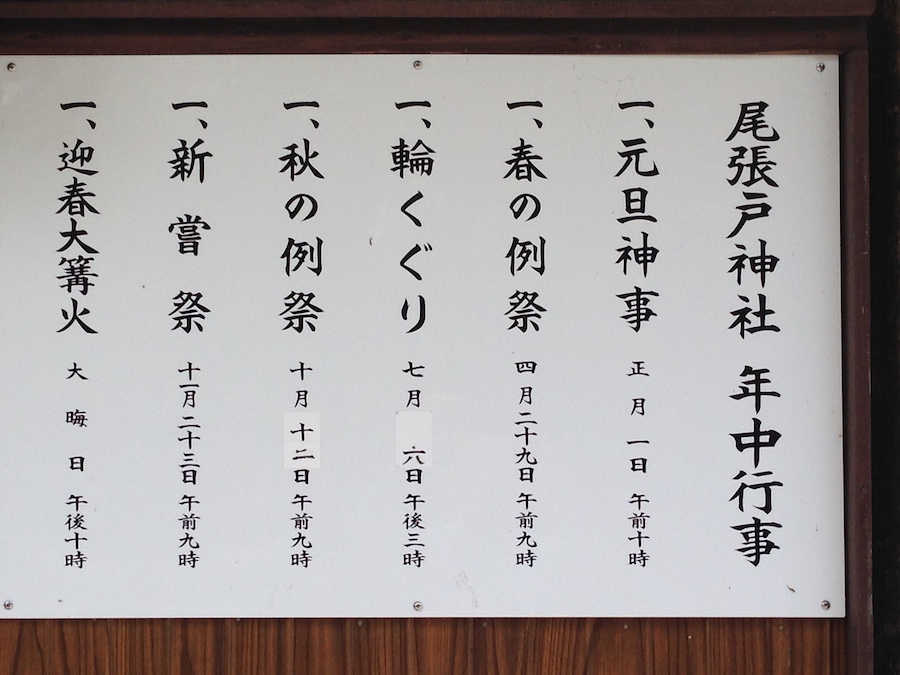 尾張戸神社 年中行事
一、元旦神事 正月一日 午前十時
一、春の例祭 四月二十九日 午前九時
一、輪くぐり 七月 六日 午後三時
一、秋の例祭 十月十二日 午前九時
一、新嘗祭 十一月二十三日 午前九時
一、迎春大篝火 大晦日 午後十時